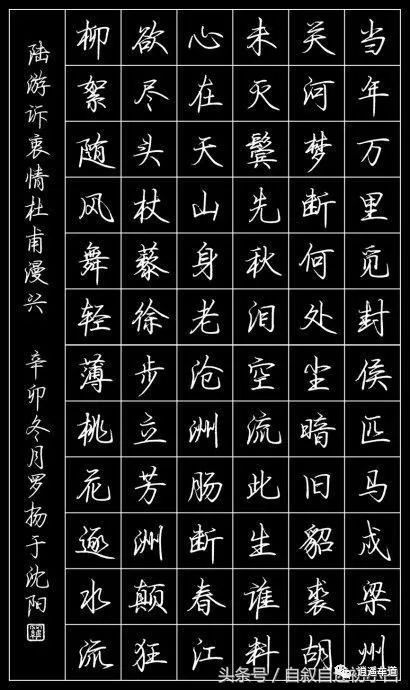 当年万里觅封侯匹马戍梁州
关河梦断何处尘暗旧貂裘胡
未灭鬓先秋泪空流此生谁料
心在天山身老沧洲肠断春江
欲尽头杖藜徐步立芳洲颠狂
柳絮随风舞轻薄桃花逐水流
陆游诉衷情杜甫漫兴 辛卯冬月罗扬于沈阳
头条号/自叙自述
逍遥奉道